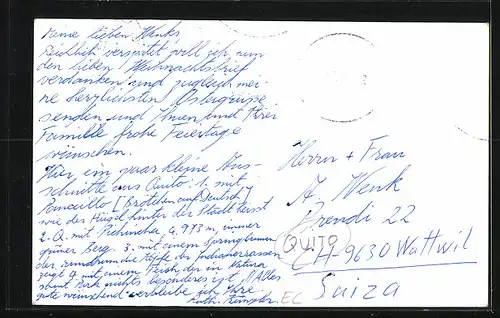 Meine lieben Wenks
Reichlich verspätet will ich nun
den lieben Weihnachtsbrief
verdanken und zugleich mei-
ne herzlichsten Ostergrüsse
senden und Ihnen und Ihrer
Familie frohe Feiertage
wünschen.
Hier ein paar kleine Aus-
schnitte aus Quito: 1. mit
Panecillo (Brötchen auf Deutsch)
wie der Hügel hinter der Stadt heisst
2. Q. mit Pichincha, 4.793 m, immer
grüner Berg. 3. mit einem Springbrunnen
der rundherum die Köpfe der Indianerrassen
zeigt 4. mit einem Teich, der in
Park nichts besonderes ist. Alles
gute wünschend verbleibe ich Ihre
Ruth
Herrn + Frau
A. Wenk
22
CH-9630 Wattwil
Suiza
QUITO
EC